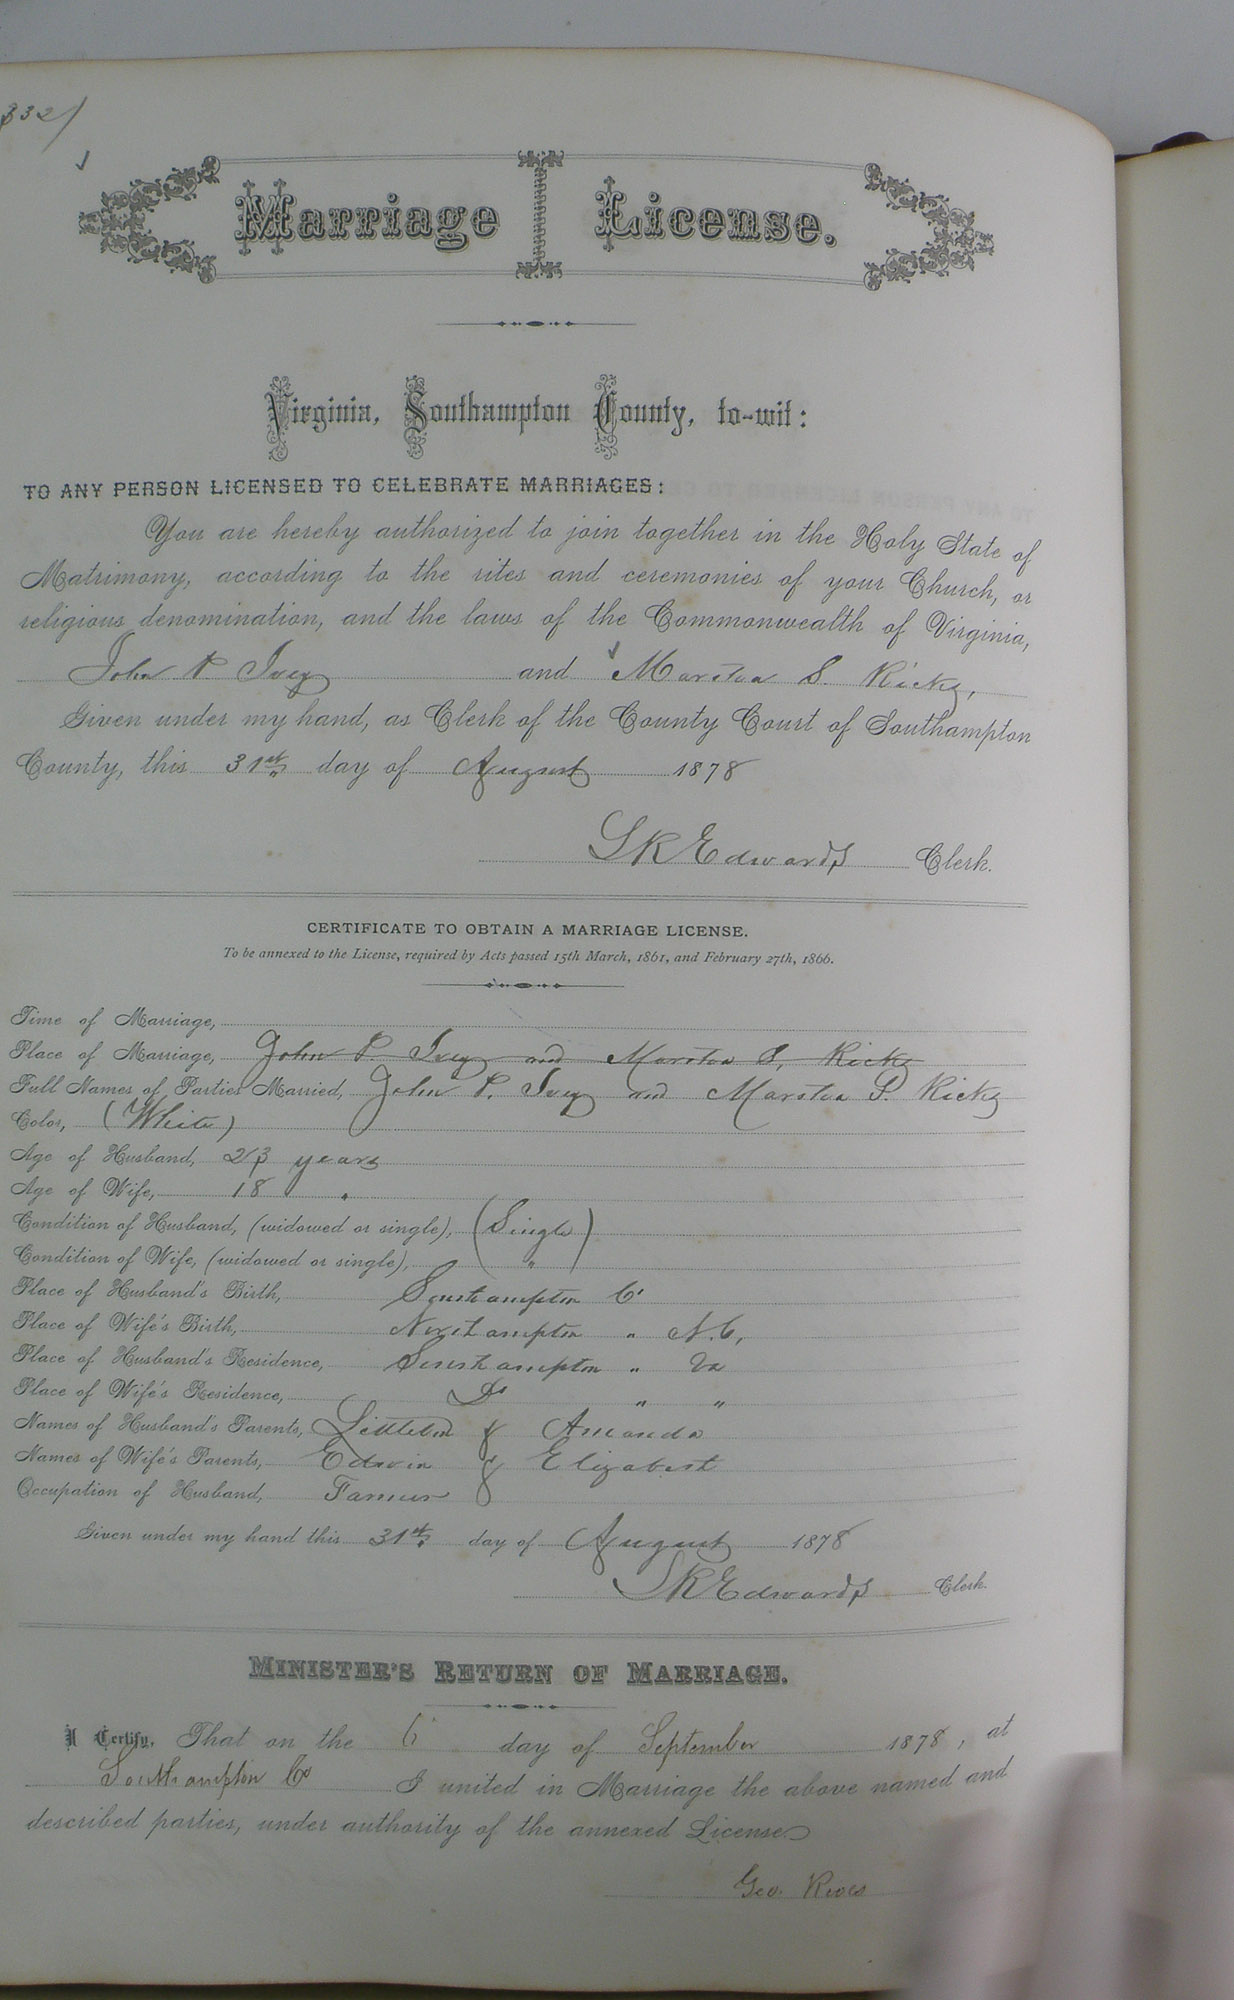 332/
Marriage License.
Virginia, Southampton County, to-wit:
TO ANY PERSON LICENSED TO CELEBRATE MARRIAGES:
You are hereby authorized to join together in the Holy State of
Matrimony, according to the rites and ceremonies of your Church, or
religious denomination, and the laws of the Commonwealth of Virginia,
John P. Ivey and Marston S. Ricks,
Given under my hand, as Clerk of the County Court of Southampton
County, this 31st day of August 1878
L R Edwards Clerk.
CERTIFICATE TO OBTAIN A MARRIAGE LICENSE.
To be annexed to the License, required by Acts passed 15th March, 1861, and February 27th, 1866.
Time of Marriage,
Place of Marriage, John P. Ivey and Marston S. Ricks
Full Names of Parties Married, John P. Ivey and Marston S. Ricks
Color, (White)
Age of Husband, 23 years
Age of Wife, 18 "
Condition of Husband, (widowed or single), (Single)
Condition of Wife, (widowed or single), "
Place of Husband's Birth, Southampton Co
Place of Wife's Birth, Northampton " N.C,
Place of Husband's Residence, Southampton " Va
Place of Wife's Residence, Do " "
Names of Husband's Parents, Littleton & Amanda
Names of Wife's Parents, Edwin & Elizabeth
Occupation of Husband, Farmer
Given under my hand this 31st day of August 1878
L R Edwards Clerk.
MINISTER'S RETURN OF MARRIAGE.
I Certify, That on the 6 day of September 1878, at
Southampton Co I united in Marriage the above named and
described parties, under authority of the annexed License
Geo. Rives